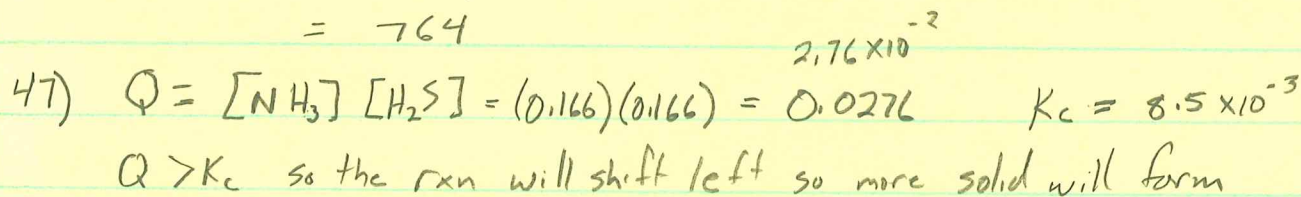 = 764
2.76 X10⁻²
47) Q = [NH₃] [H₂S] = (0.166)(0.166) = 0.0276 Kc = 8.5 X10⁻³
Q >Kc so the rxn will shift left so more solid will form